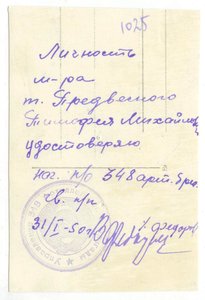 1025
Личность
м-ра
т. Предвесного
Тимофея Михайлов
удостоверяю
нач. п/о 548 арт.
гв. п/п
31/I-50г.